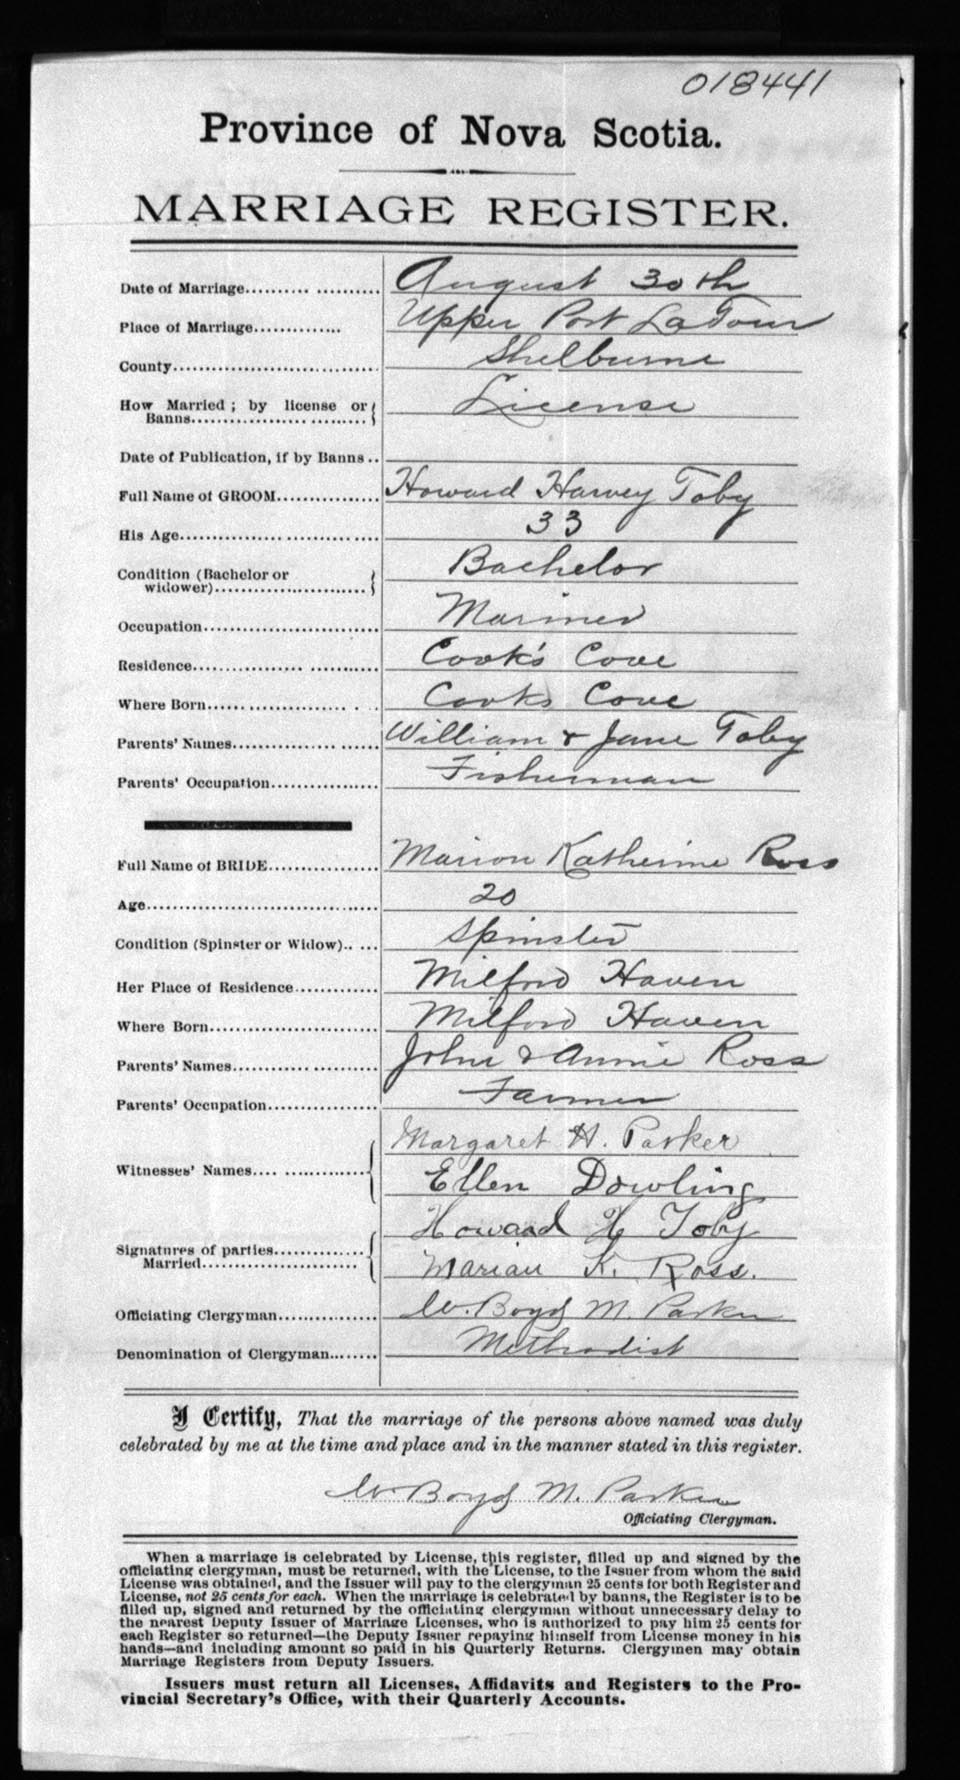 018441
Province of Nova Scotia.
MARRIAGE REGISTER.
Date of Marriage.......... .......... August 30th
Place of Marriage.............. Upper Port LaTour
County............................... Shelburne
How Married ; by license or License
Banns.................. .........
Date of Publication, if by Banns ..
Full Name of GROOM............... Howard Harvey Toby
His Age............................... 33
Condition (Bachelor or Bachelor
widower)...........................
Occupation........................... Mariner
Residence................. .......... Cook's Cove
Where Born...... ............... . . Cooks Cove
Parents' Names................. ...... William & Jane Toby
Parents' Occupation................. Fisherman
Full Name of BRIDE................. Marion Katherine Ross
Age.................................... 20
Condition (Spinster or Widow).. ... Spinster
Her Place of Residence............. Milford Haven
Where Born......................... Milford Haven
Parents' Names............ .......... John & Annie Ross
Parents' Occupation................. Farmer
Margaret H. Parker
Witnesses' Names.... ..............
Ellen Dowling
Howard H Toby
Signatures of parties..............
Married........................ Marian K. Ross.
Officiating Clergyman............... W. Boyd M. Parker
Denomination of Clergyman....... Methodist
I Certify, That the marriage of the persons above named was duly
celebrated by me at the time and place and in the manner stated in this register.
W Boyd M. Parker
Officiating Clergyman.
When a marriage is celebrated by License, this register, filled up and signed by the
officiating clergyman, must be returned, with the License, to the Issuer from whom the said
License was obtained, and the Issuer will pay to the clergyman 25 cents for both Register and
License, not 25 cents for each. When the marriage is celebrated by banns, the Register is to be
filled up, signed and returned by the officiating clergyman without unnecessary delay to
the nearest Deputy Issuer of Marriage Licenses, who is authorized to pay him 25 cents for
each Register so returned—the Deputy Issuer repaying himself from License money in his
hands—and including amount so paid in his Quarterly Returns. Clergymen may obtain
Marriage Registers from Deputy Issuers.
Issuers must return all Licenses, Affidavits and Registers to the Pro-
vincial Secretary's Office, with their Quarterly Accounts.